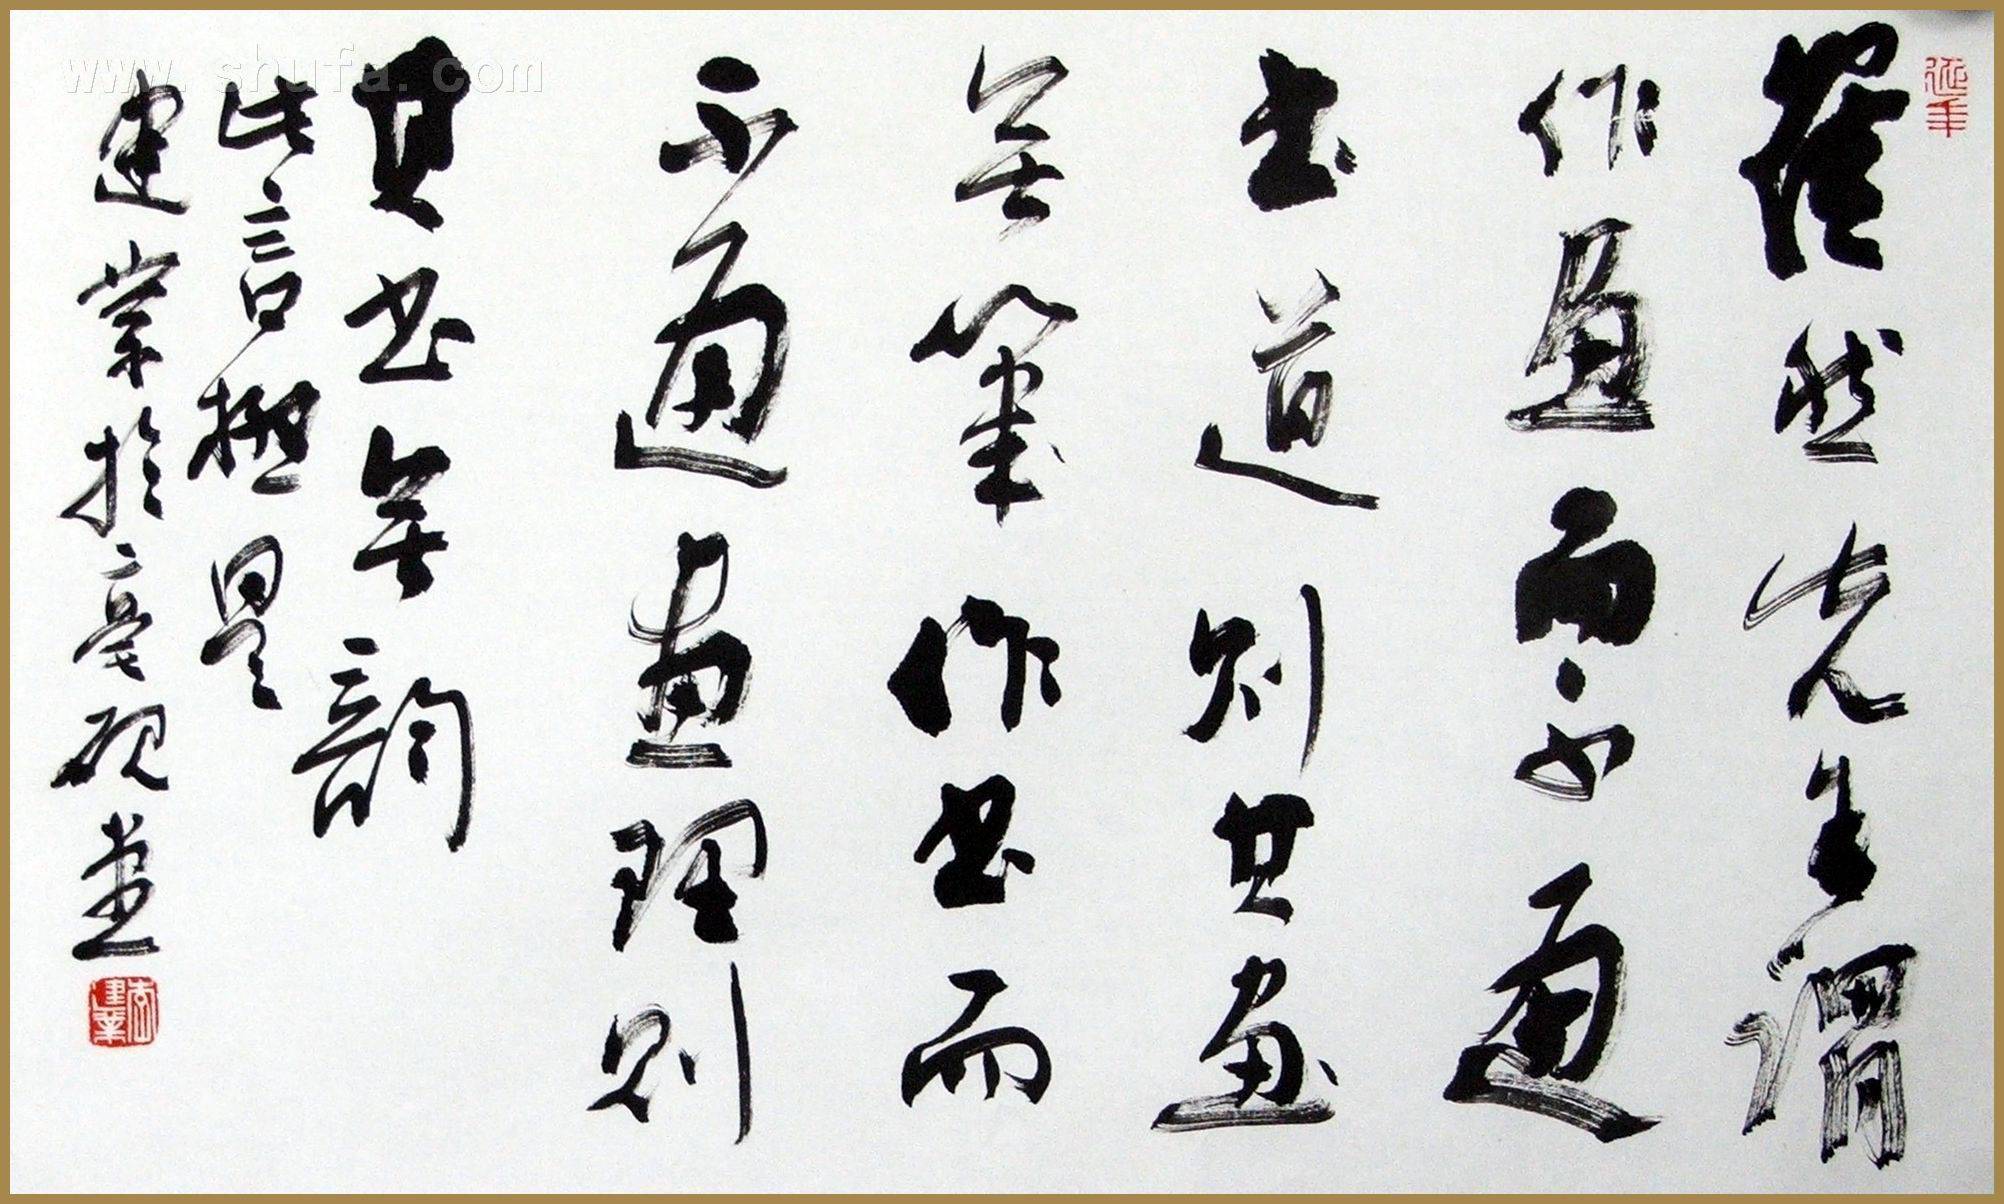 然先生謂
作畫而不通
書道則其畫
無筆作書而
不通畫理則
其書無韻
此言極是
建業於硯堂
延年
www.shufa.com